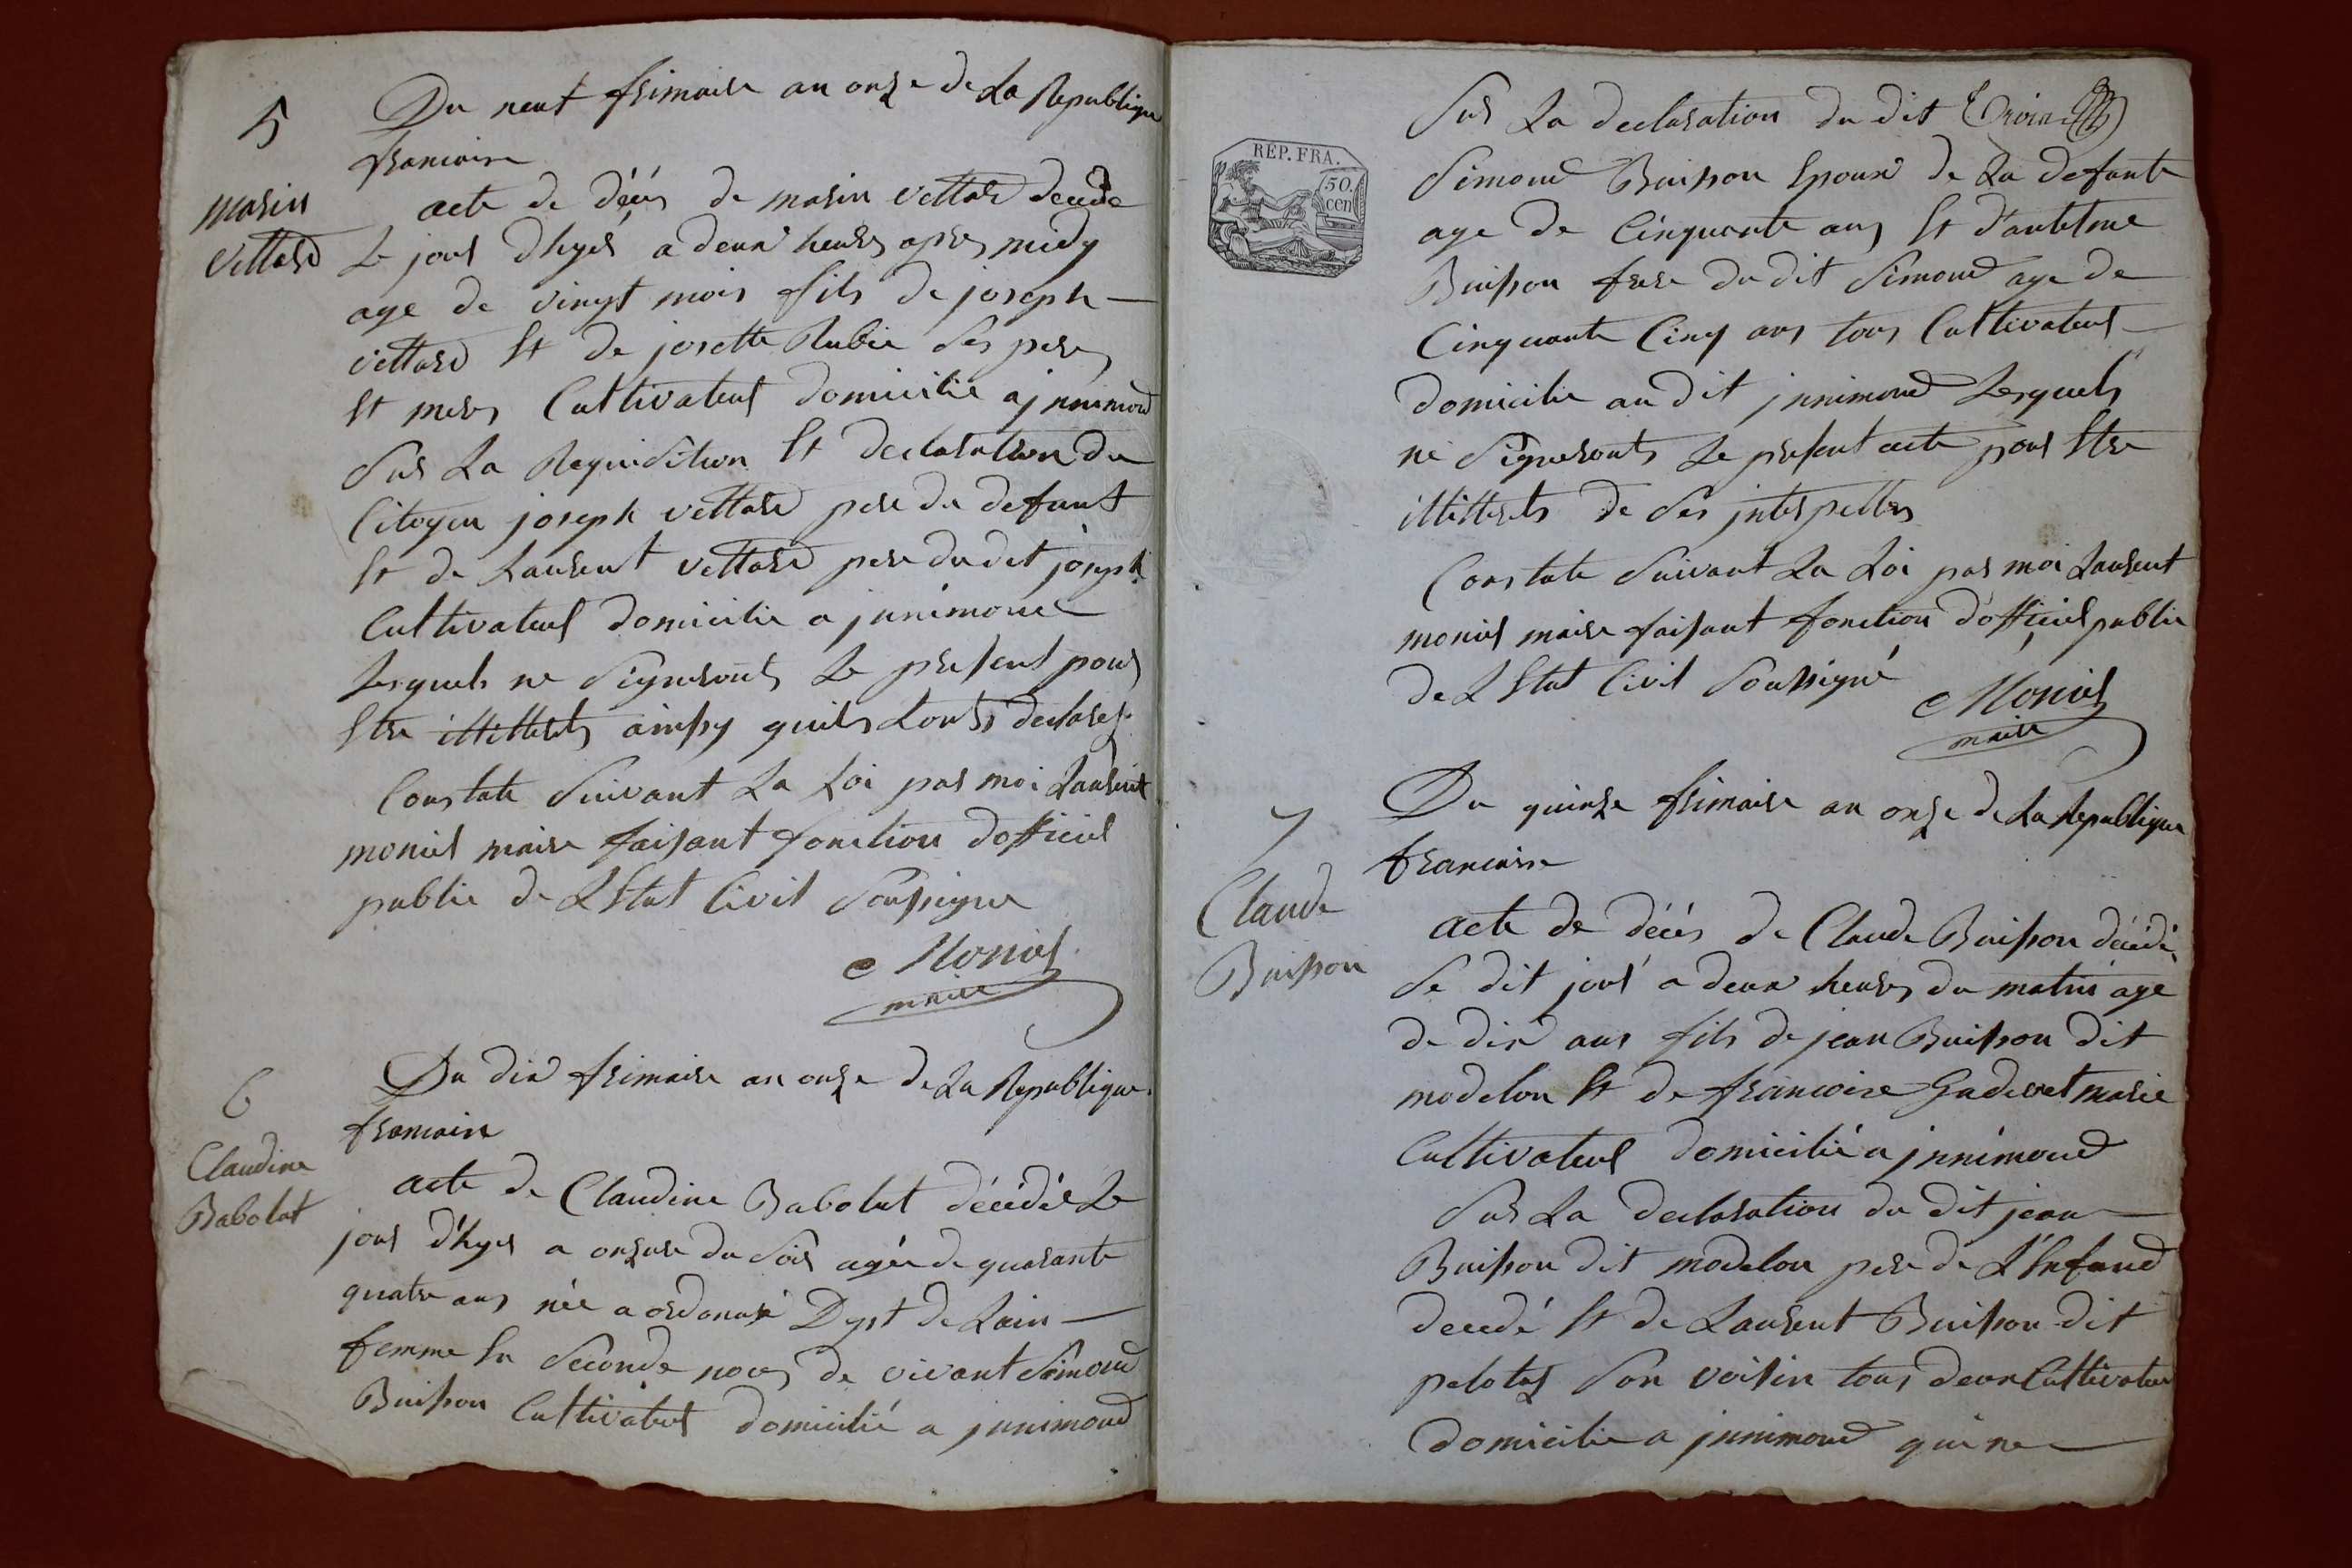 5
Du neuf frimaire an onze de La Republique
francaise
marin
vettard
acte de décés de marin vettard decede
Le jour dhyer a deux heures apres midy
age de vingt mois fils de joseph
vettard Et de josette Rubie ses pere
Et mere Cultivateur domicilie a junimond
Sur La Requisition Et declaration du
Citoyen joseph vettard pere du defunt
Et de Laurent vettard pere du dit joseph
Cultivateur domicilie a junimond
Lesquels ne signeronts Le present pour
Etre illitterets ainssy quils Lonts declarez
Constate suivant La Loi par moi Laurent
monier maire faisant fonction dofficier
public de LEtat Civil soussigne
Monier
maire
6
Du dix frimaire an onze de La Republique
francaise
Claudine
Babolat
acte de Claudine Babolat décédée Le
jour d'hyer a onzure du soir agée de quarante
quatre ans née a ordonas Dept de Lain
femme En seconde noces de vivant Simond
Buisson Cultivateur domicilié a junimond
REP. FRA.
50.
cen
Sur La declaration du dit
Simond Buisson Epoux de La defunte
age de Cinquante ans Et d'antelme
Buisson frere du dit Simond age de
Cinquante Cinq ans tous Cultivateur
domicilie au dit junimond Lesquels
ne signeronts Le present acte pour Etre
illitterets de Ses interpelles
Constate suivant La Loi par moi Laurent
monier maire faisant fonction d'officier public
de LEtat Civil soussigné
Monier
maire
7
Du quinze frimaire an onze de La Republique
francaise
Claude
Buisson
acte de décés de Claude Buisson décédé
Se dit jour a deux heures du matin age
de dix ans fils de jean Buisson dit
modelon Et de francoise marie
Cultivateur domicilié a junimond
Sur La declaration du dit jean
Buisson dit modelon pere de L'Enfand
decedé Et de Laurent Buisson dit
pelotas son voisin tous deux Cultivateur
domicilie a junimond qui ne